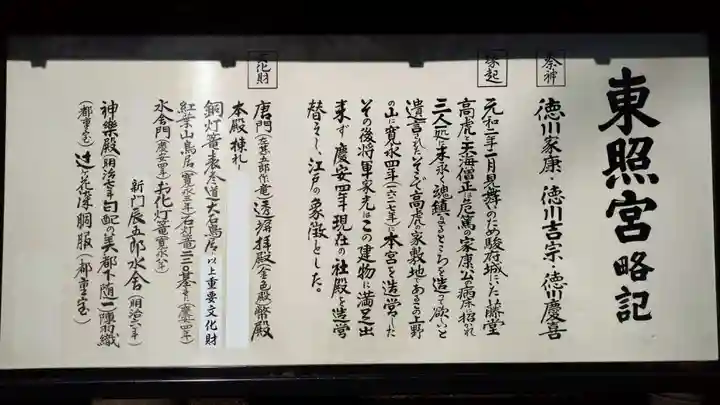 東照宮略記
祭神
徳川家康・徳川吉宗・徳川慶喜
縁起
元和二年二月見舞のため駿府城にいた藤堂
高虎と天海僧正は危篤の家康公の病床に招かれ
三人一処に末永く魂鎮まるところを造って欲しいと
遺言された。そこで高虎の家敷地であるこの上野
の山に寛永四年(一六二七年)に本宮を造営した
その後将軍家光はこの建物に満足出
来ず慶安四年現在の社殿を造営
替えし、江戸の象徴とした。
文化財
唐門(左甚五郎作竜)透塀 拝殿(金色殿)幣殿
本殿 棟札
銅灯篭 表参道 大石鳥居 以上重要文化財
紅葉山鳥居(寛永三年)石灯篭二二〇基(慶安四年)
水舎門(慶安四年)お化灯篭(寛永八年)
新門辰五郎水舎(明治六年)
神楽殿(明治七年)勾配の美都下随一 陣羽織
(都重宝)辻ヶ花染胴服(都重宝)